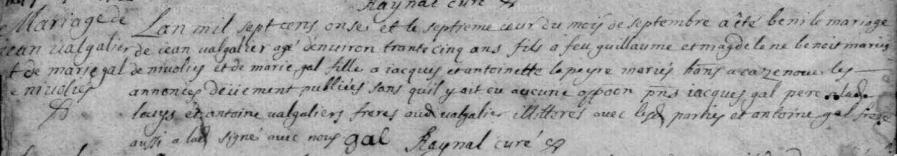 Raynal curé
Mariage de Lan mil sept cens onse et le septieme jour du mois de septembre a êté beni le mariage
jean valgalier de jean valgalier agé denviron trante cinq ans fils a feu guillaume et magdelene benoit mariés
et de marie gal de nivoliés et de marie gal fille a jacques et antoinette lapeyre mariés habans a cazenove les
de nivoliés annonces deüement publiées sans quil y ait eu aucune oppoon pnts jacques gal pere a lad
louys et antoine valgaliers freres aud valgalier illitterés avec lesd parties et antoine gal frere
aussi a lad signé avec nous gal Raynal curé